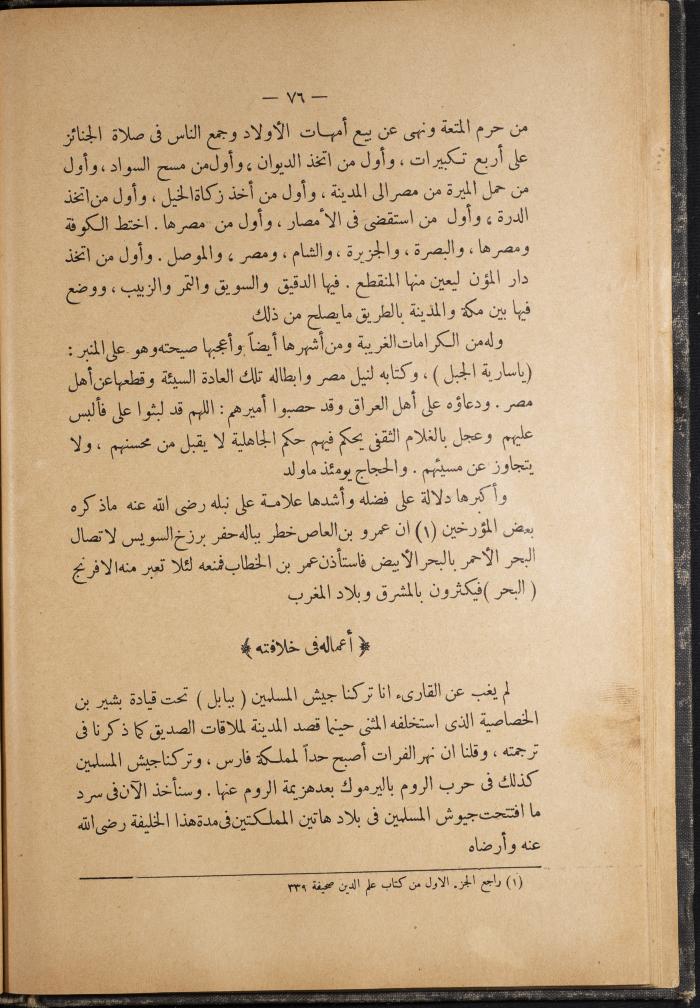 — ٧٦ —
من حرم المتعة ونهى عن بيع أمهات الأولاد وجمع الناس فى صلاة الجنائز
على أربع تكبيرات ، وأول من اتخذ الديوان ، وأول من مسح السواد ، وأول
من حمل الميرة من مصر الى المدينة ، وأول من أخذ زكاة الخيل ، وأول من اتخذ
الدرة ، وأول من استقضى فى الأمصار ، وأول من مصرها . اختط الكوفة
ومصرها ، والبصرة ، والجزيرة ، والشام ، ومصر ، والموصل . وأول من اتخذ
دار المؤن ليعين منها المنقطع . فيها الدقيق والسويق والتمر والزبيب ، ووضع
فيها بين مكة والمدينة بالطريق مايصلح من ذلك
وله من الكرامات الغريبة ومن أشهرها أيضاً وأعجبها صيحته وهو على المنبر :
( ياسارية الجبل ) ، وكتابه لنيل مصر وابطاله تلك العادة السيئة وقطعها عن أهل
مصر . ودعاؤه على أهل العراق وقد حصبوا أميرهم : اللهم قد لبثوا على فألبس
عليهم وعجل بالغلام الثقفى يحكم فيهم حكم الجاهلية لا يقبل من محسنهم ، ولا
يتجاوز عن مسيئهم . والحجاج يومئذ ماولد
وأكبرها دلالة على فضله وأشدها علامة على نبله رضى الله عنه ماذكره
بعض المؤرخين (١) ان عمرو بن العاص خطر بباله حفر برزخ السويس لاتصال
البحر الأحمر بالبحر الأبيض فاستأذن عمر بن الخطاب فمنعه لئلا تعبر منه الافرنج
( البحر ) فيكثرون بالمشرق وبلاد المغرب
﴿ أعماله فى خلافته ﴾
لم يغب عن القارىء انا تركنا جيش المسلمين ( ببابل ) تحت قيادة بشير بن
الخصاصية الذى استخلفه المثنى حينما قصد المدينة لملاقات الصديق كما ذكرنا فى
ترجمته ، وقلنا ان نهر الفرات أصبح حداً لمملكة فارس ، وتركنا جيش المسلمين
كذلك فى حرب الروم باليرموك بعد هزيمة الروم عنها . وسنأخذ الآن فى سرد
ما افتتحت جيوش المسلمين فى بلاد هاتين المملكتين فى مدة هذا الخليفة رضى الله
عنه وأرضاه
(١) راجع الجزء الاول من كتاب علم الدين صحيفة ٣٣٩